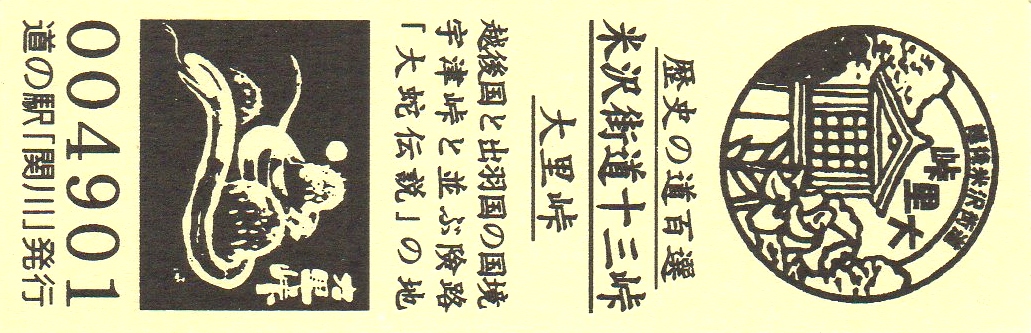 越後米沢街道
大里峠
歴史の道百選
米沢街道十三峠
大里峠
越後国と出羽国の国境
宇津峠と並ぶ険路
「大蛇伝説」の地
大里峠
004901
道の駅「関川」発行